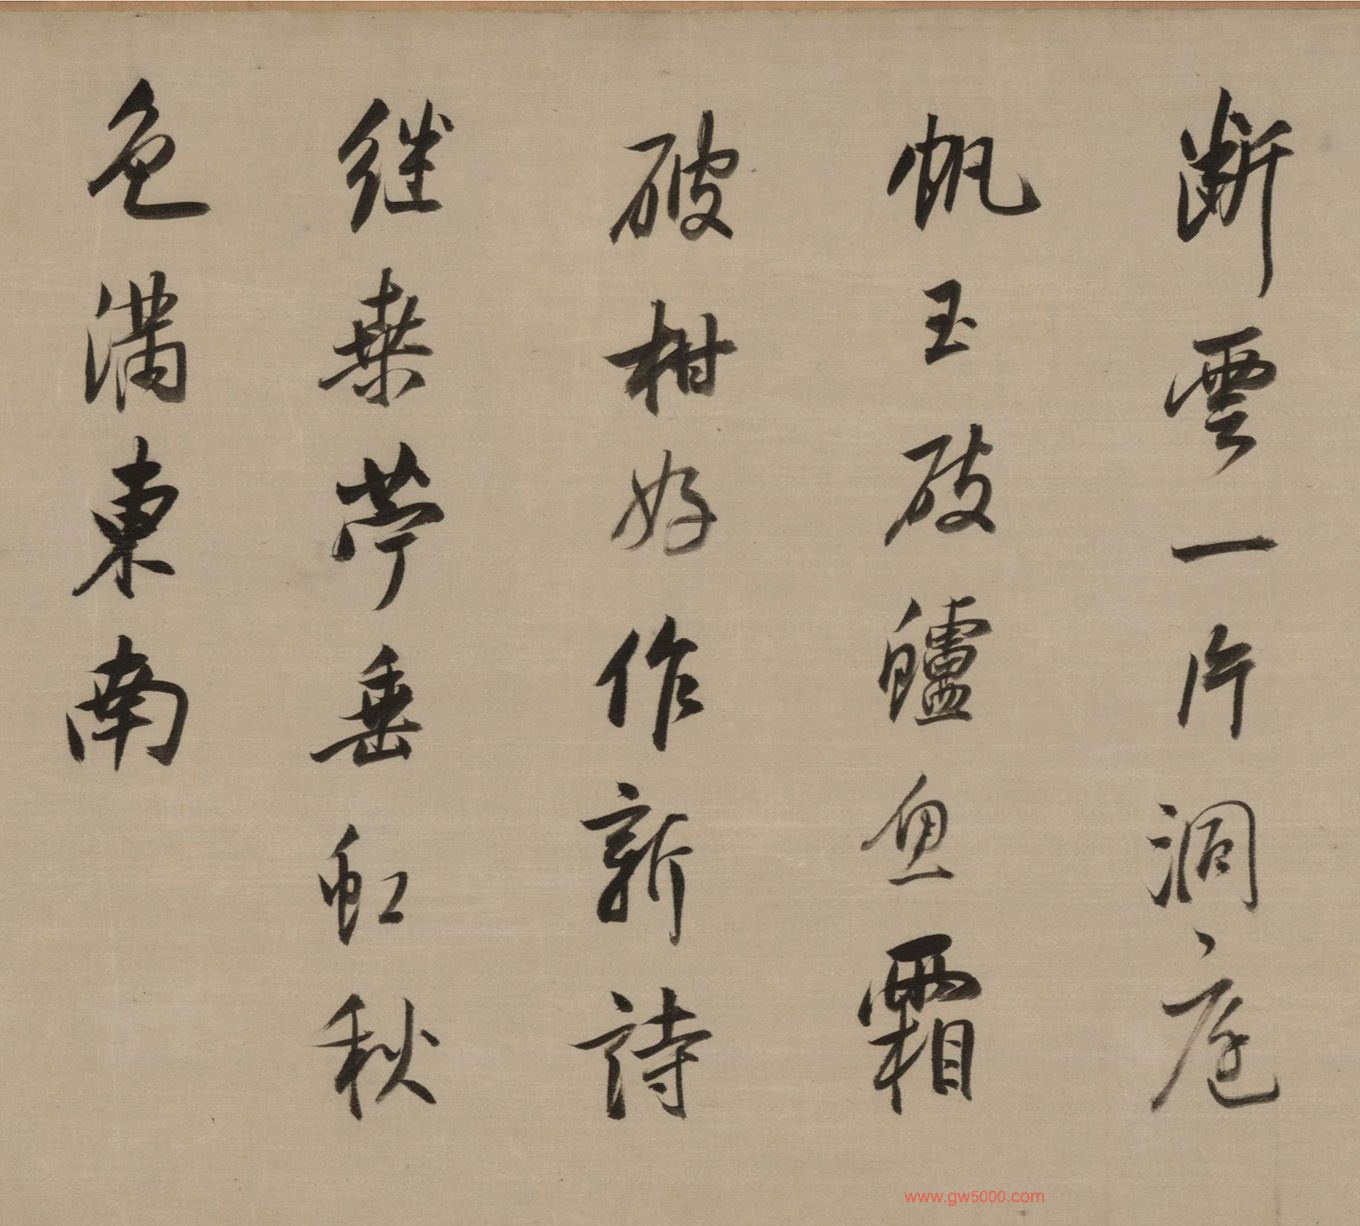 断雲一片洞庭
帆玉破鱸魚霜
破柑好作新詩
继桑苧垂虹秋
色滿東南
www.gw5000.com